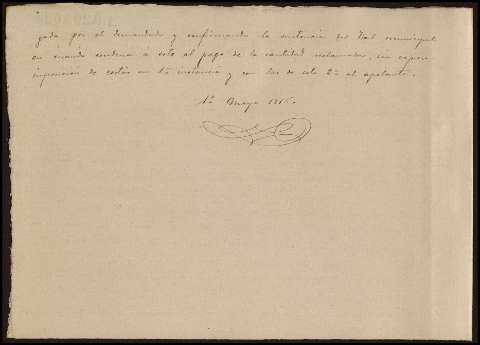 gada por el demandado y confirmando la sentencia del Tral municipal
en cuanto condena á este al pago de la cantidad reclamada, sin expresa
imposición de costas en 1ª instancia y con las de esta 2ª al apelante.
1º Mayo 1916.